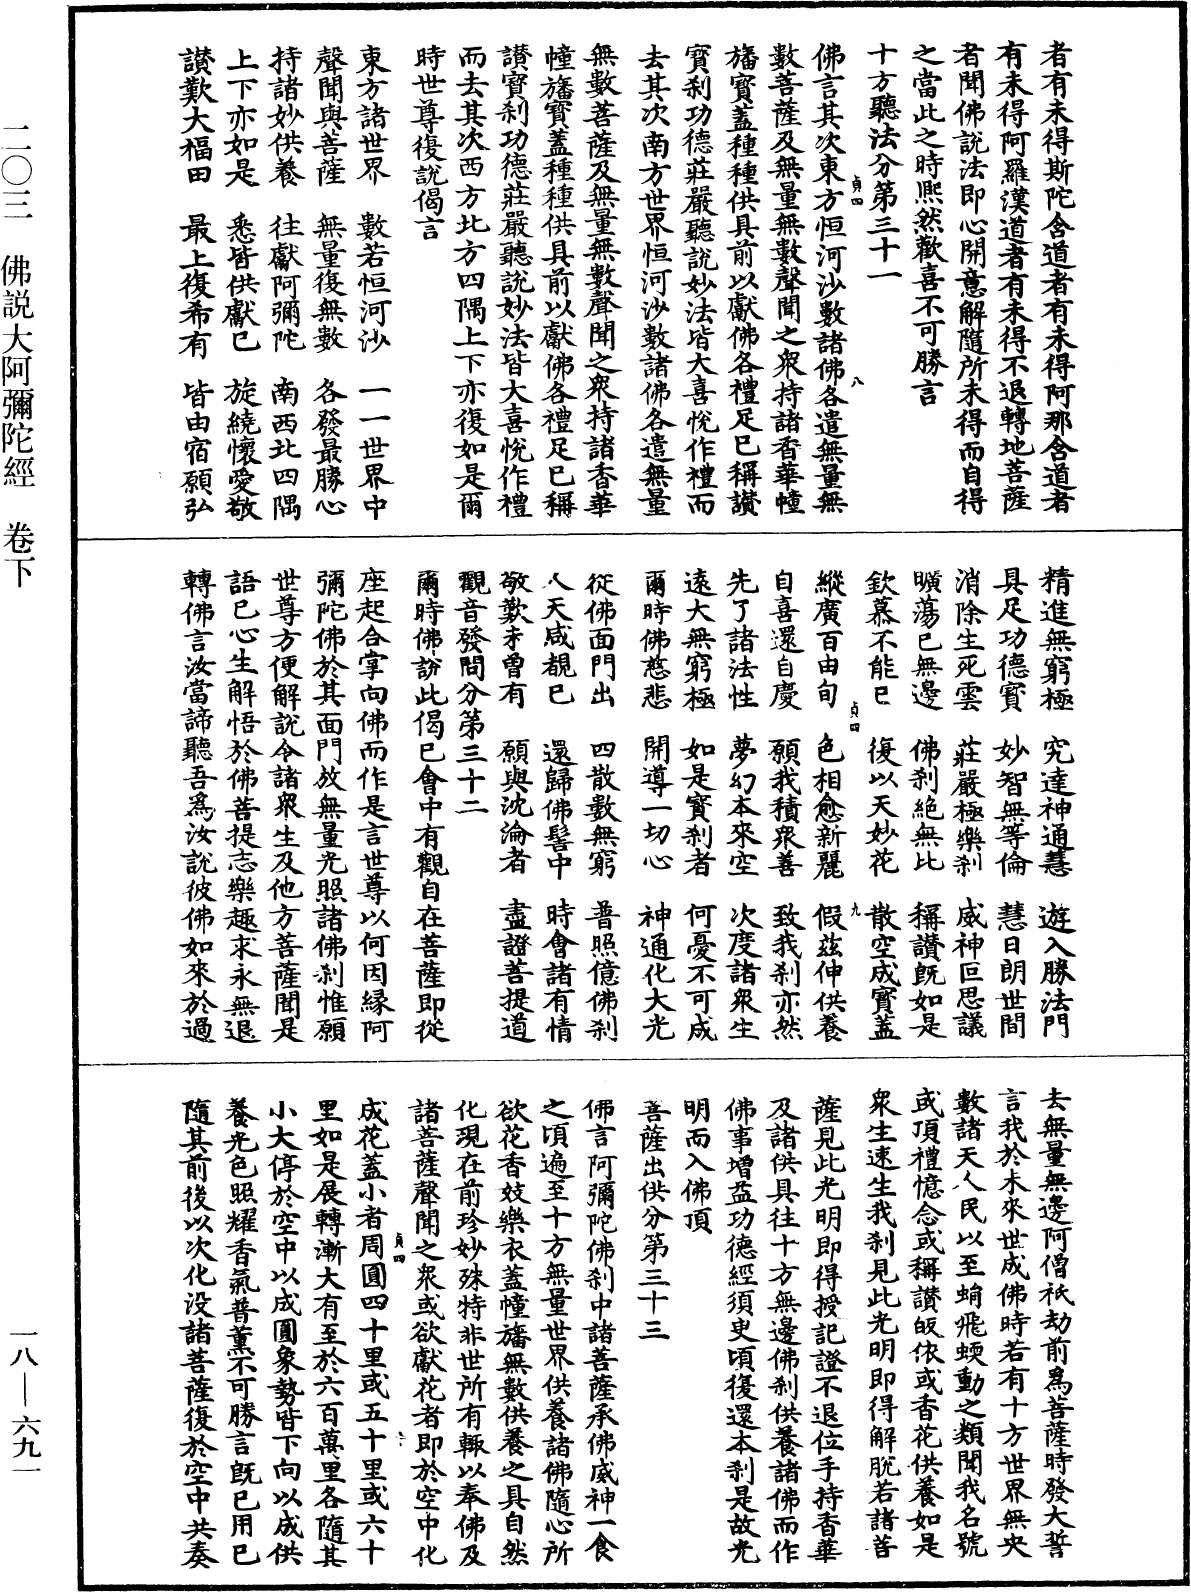 者有未得斯陀含道者有未得阿那含道者
有未得阿羅漢道者有未得不退轉地菩薩
者聞佛說法即心開意解隨所未得而自得
之當此之時熈然歡喜不可勝言
十方聽法分第三十一
佛言其次東方恒河沙數諸佛各遣無量無
數菩薩及無量無數聲聞之衆持諸香華幢
旛寳蓋種種供具前以獻佛各禮足已稱讃
寳刹功德莊嚴聽說妙法皆大喜悅作禮而
去其次南方世界恒河沙數諸佛各遣無量
無數菩薩及無量無數聲聞之衆持諸香華
幢旛寳蓋種種供具前以獻佛各禮足已稱
讃寳刹功德莊嚴聽說妙法皆大喜悅作禮
而去其次西方北方四隅上下亦復如是爾
時世尊復說偈言
東方諸世界　數若恒河沙　一一世界中
聲聞與菩薩　無量復無數　各發最勝心
持諸妙供養　往獻阿彌陀　南西北四隅
上下亦如是　悉皆供獻已　旋繞懷愛敬
讃歎大福田　最上復希有　皆由宿願弘
精進無窮極　究達神通慧　遊入勝法門
具足功德寳　妙智無等倫　慧日朗世間
消除生死雲　莊嚴極樂刹　威神叵思議
曠蕩已無邊　佛刹絕無比　稱讃既如是
欽慕不能已　復以天妙花　散空成寳蓋
縱廣百由旬　色相愈新麗　假茲伸供養
自喜還自慶　願我積衆善　致我刹亦然
先了諸法性　夢幻本來空　次度諸衆生
遠大無窮極　如是寳刹者　何憂不可成
爾時佛慈悲　開導一切心　神通化大光
從佛面門出　四散數無窮　普照億佛刹
人天咸覩已　還歸佛髻中　時會諸有情
敬歎未曾有　願與沈淪者　盡證菩提道
觀音發問分第三十二
爾時佛說此偈已會中有觀自在菩薩即從
座起合掌向佛而作是言世尊以何因緣阿
彌陀佛於其面門放無量光照諸佛刹惟願
世尊方便解說令諸衆生及他方菩薩聞是
語已心生解悟於佛菩提志樂趣求永無退
轉佛言汝當諦聽吾爲汝說彼佛如來於過
去無量無邊阿僧祇劫前爲菩薩時發大誓
言我於未來世成佛時若有十方世界無央
數諸天人民以至蜎飛蝡動之類聞我名號
或頂禮憶念或稱讃皈依或香花供養如是
衆生速生我刹見此光明即得解脫若諸菩
薩見此光明即得授記證不退位手持香華
及諸供具往十方無邊佛刹供養諸佛而作
佛事增益功德經須臾頃復還本刹是故光
明而入佛頂
菩薩出供分第三十三
佛言阿彌陀佛刹中諸菩薩承佛威神一食
之頃遍至十方無量世界供養諸佛隨心所
欲花香妓樂衣蓋幢旛無數供養之具自然
化現在前珍妙殊特非世所有輒以奉佛及
諸菩薩聲聞之衆或欲獻花者即於空中化
成花蓋小者周圓四十里或五十里或六十
里如是展轉漸大有至於六百萬里各隨其
小大停於空中以成圓象勢皆下向以成供
養光色照耀香氣普薰不可勝言既已用已
隨其前後以次化没諸菩薩復於空中共奏
貞四
八
貞四
九
貞四
二〇三　佛說大阿彌陀經　卷下
一八—六九一